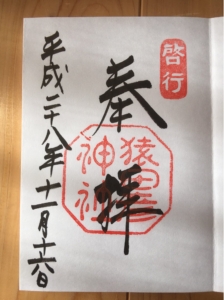 啓行
奉拝
猿田彦神社
平成二十八年十一月十六日